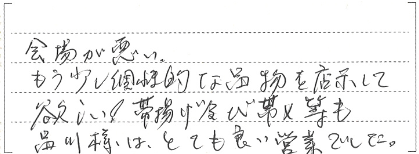 会場が悪い。
もう少し個性的な品物を店示して
欲しい!帯揚げ及び帯〆等も
品川様は、とても良い営業でした。